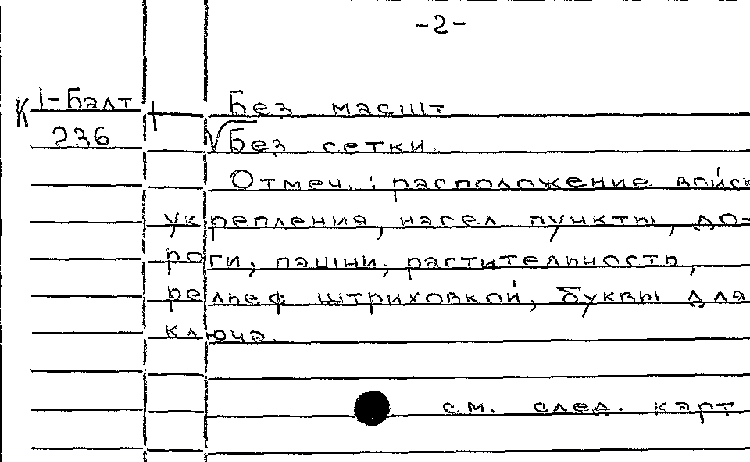 -2-
К 1-Балт
236
Без масшт
√Без сетки.
Отмеч.: расположение войск
укрепления, насел пункты, до-
роги, пашни, растительность,
рельеф штриховкой, буквы для
ключа.
см. след. карт